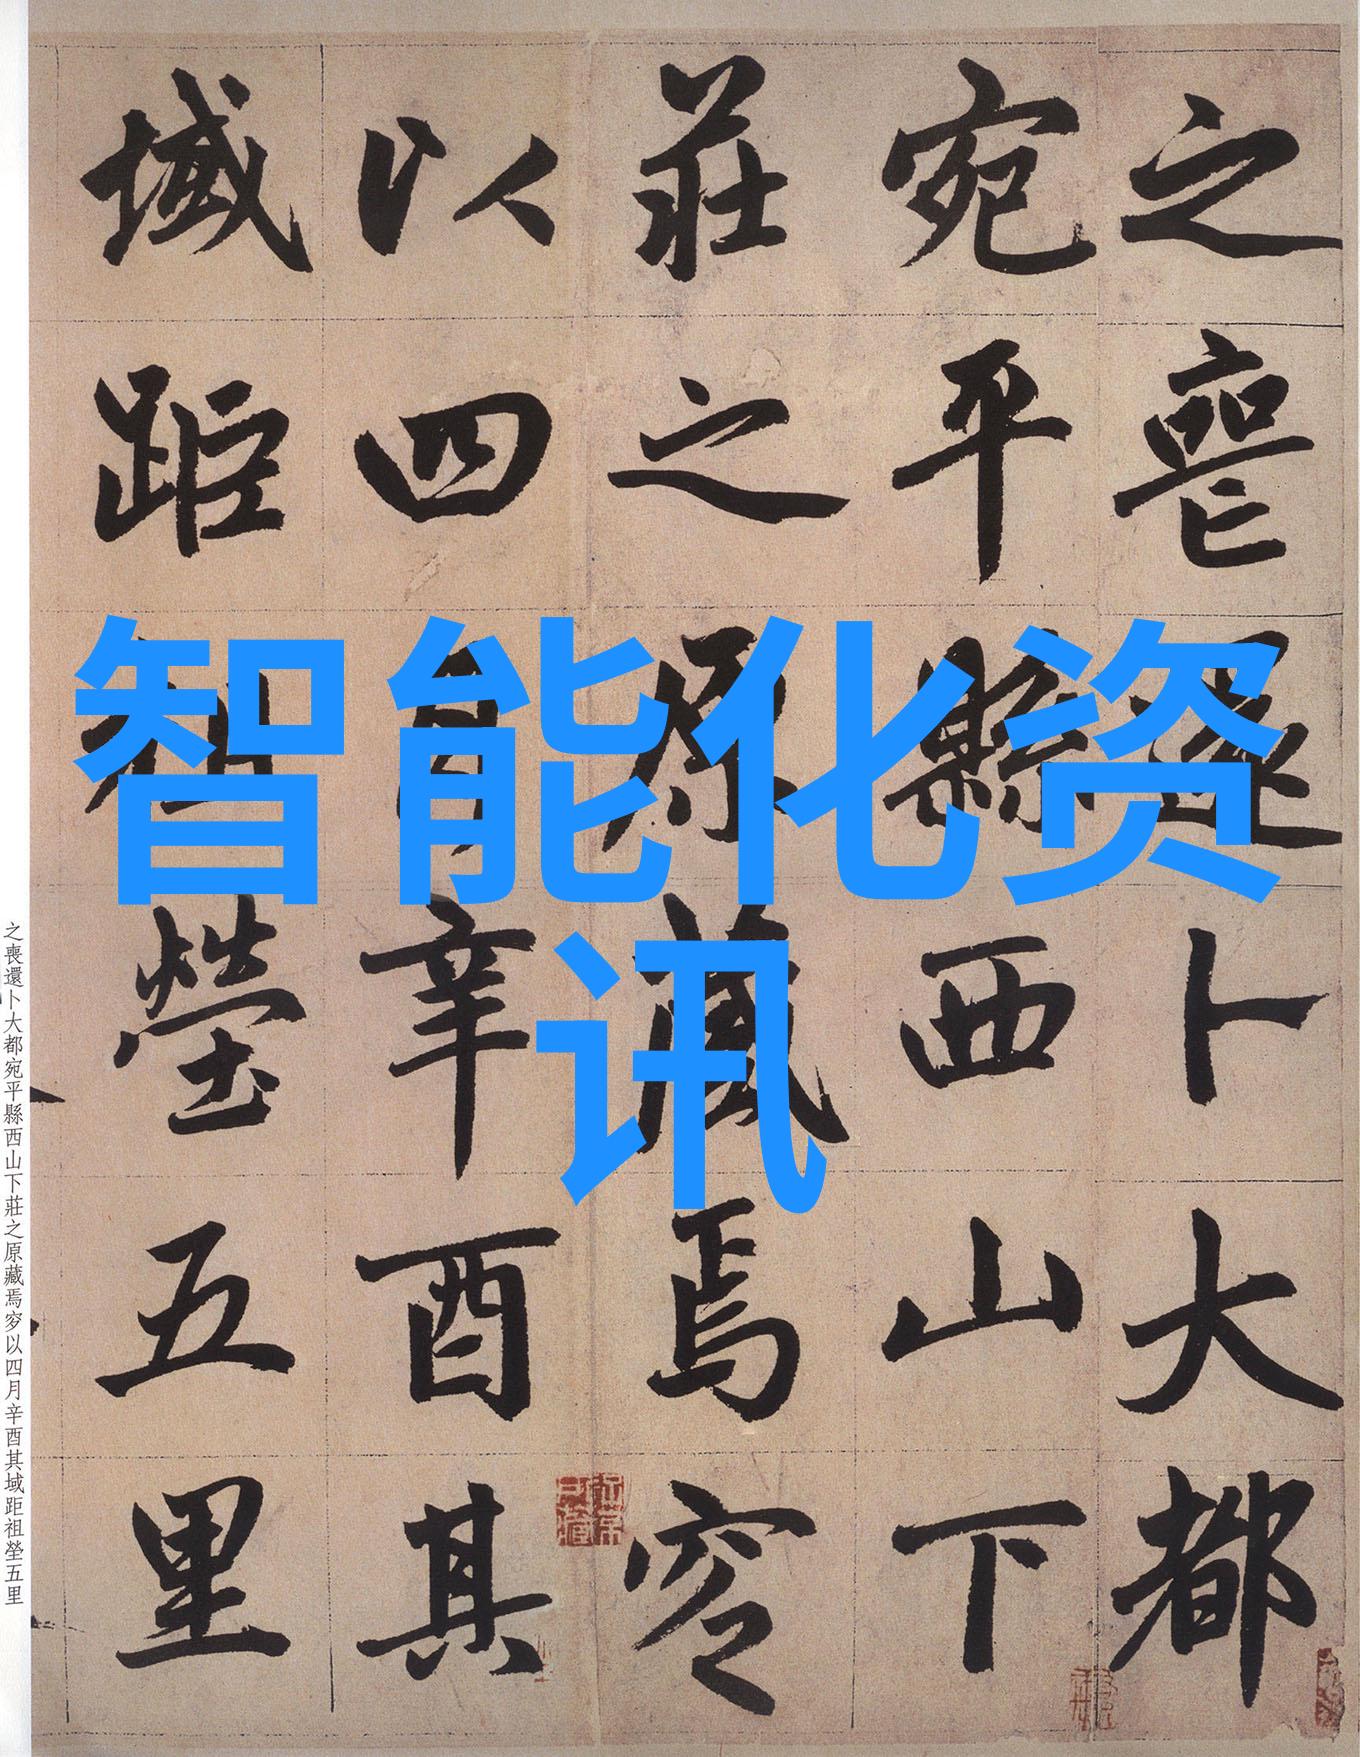 之喪還卜大都
宛平縣西山下
莊之原藏焉穸
以四月辛酉其
域距祖塋五里
智能化资
讯
之喪還卜大都宛平縣西山下莊之原藏焉穸以四月辛酉其域距祖塋五里